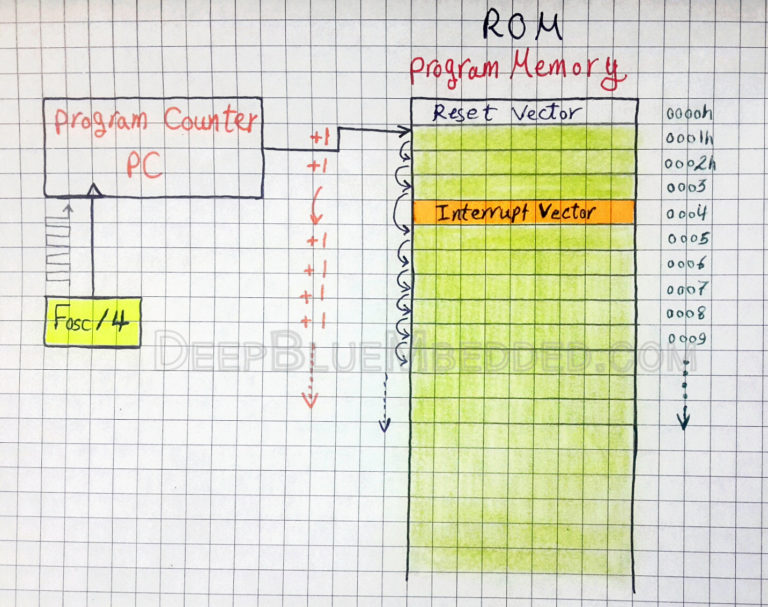 ROM
Program Memory
Program Counter
PC
Fosc/4
+1
+1
+1
+1
+1
+1
Reset Vector
Interrupt Vector
0000h
0001h
0002h
0003
0004
0005
0006
0007
0008
0009
DeepBlueMbedded.com